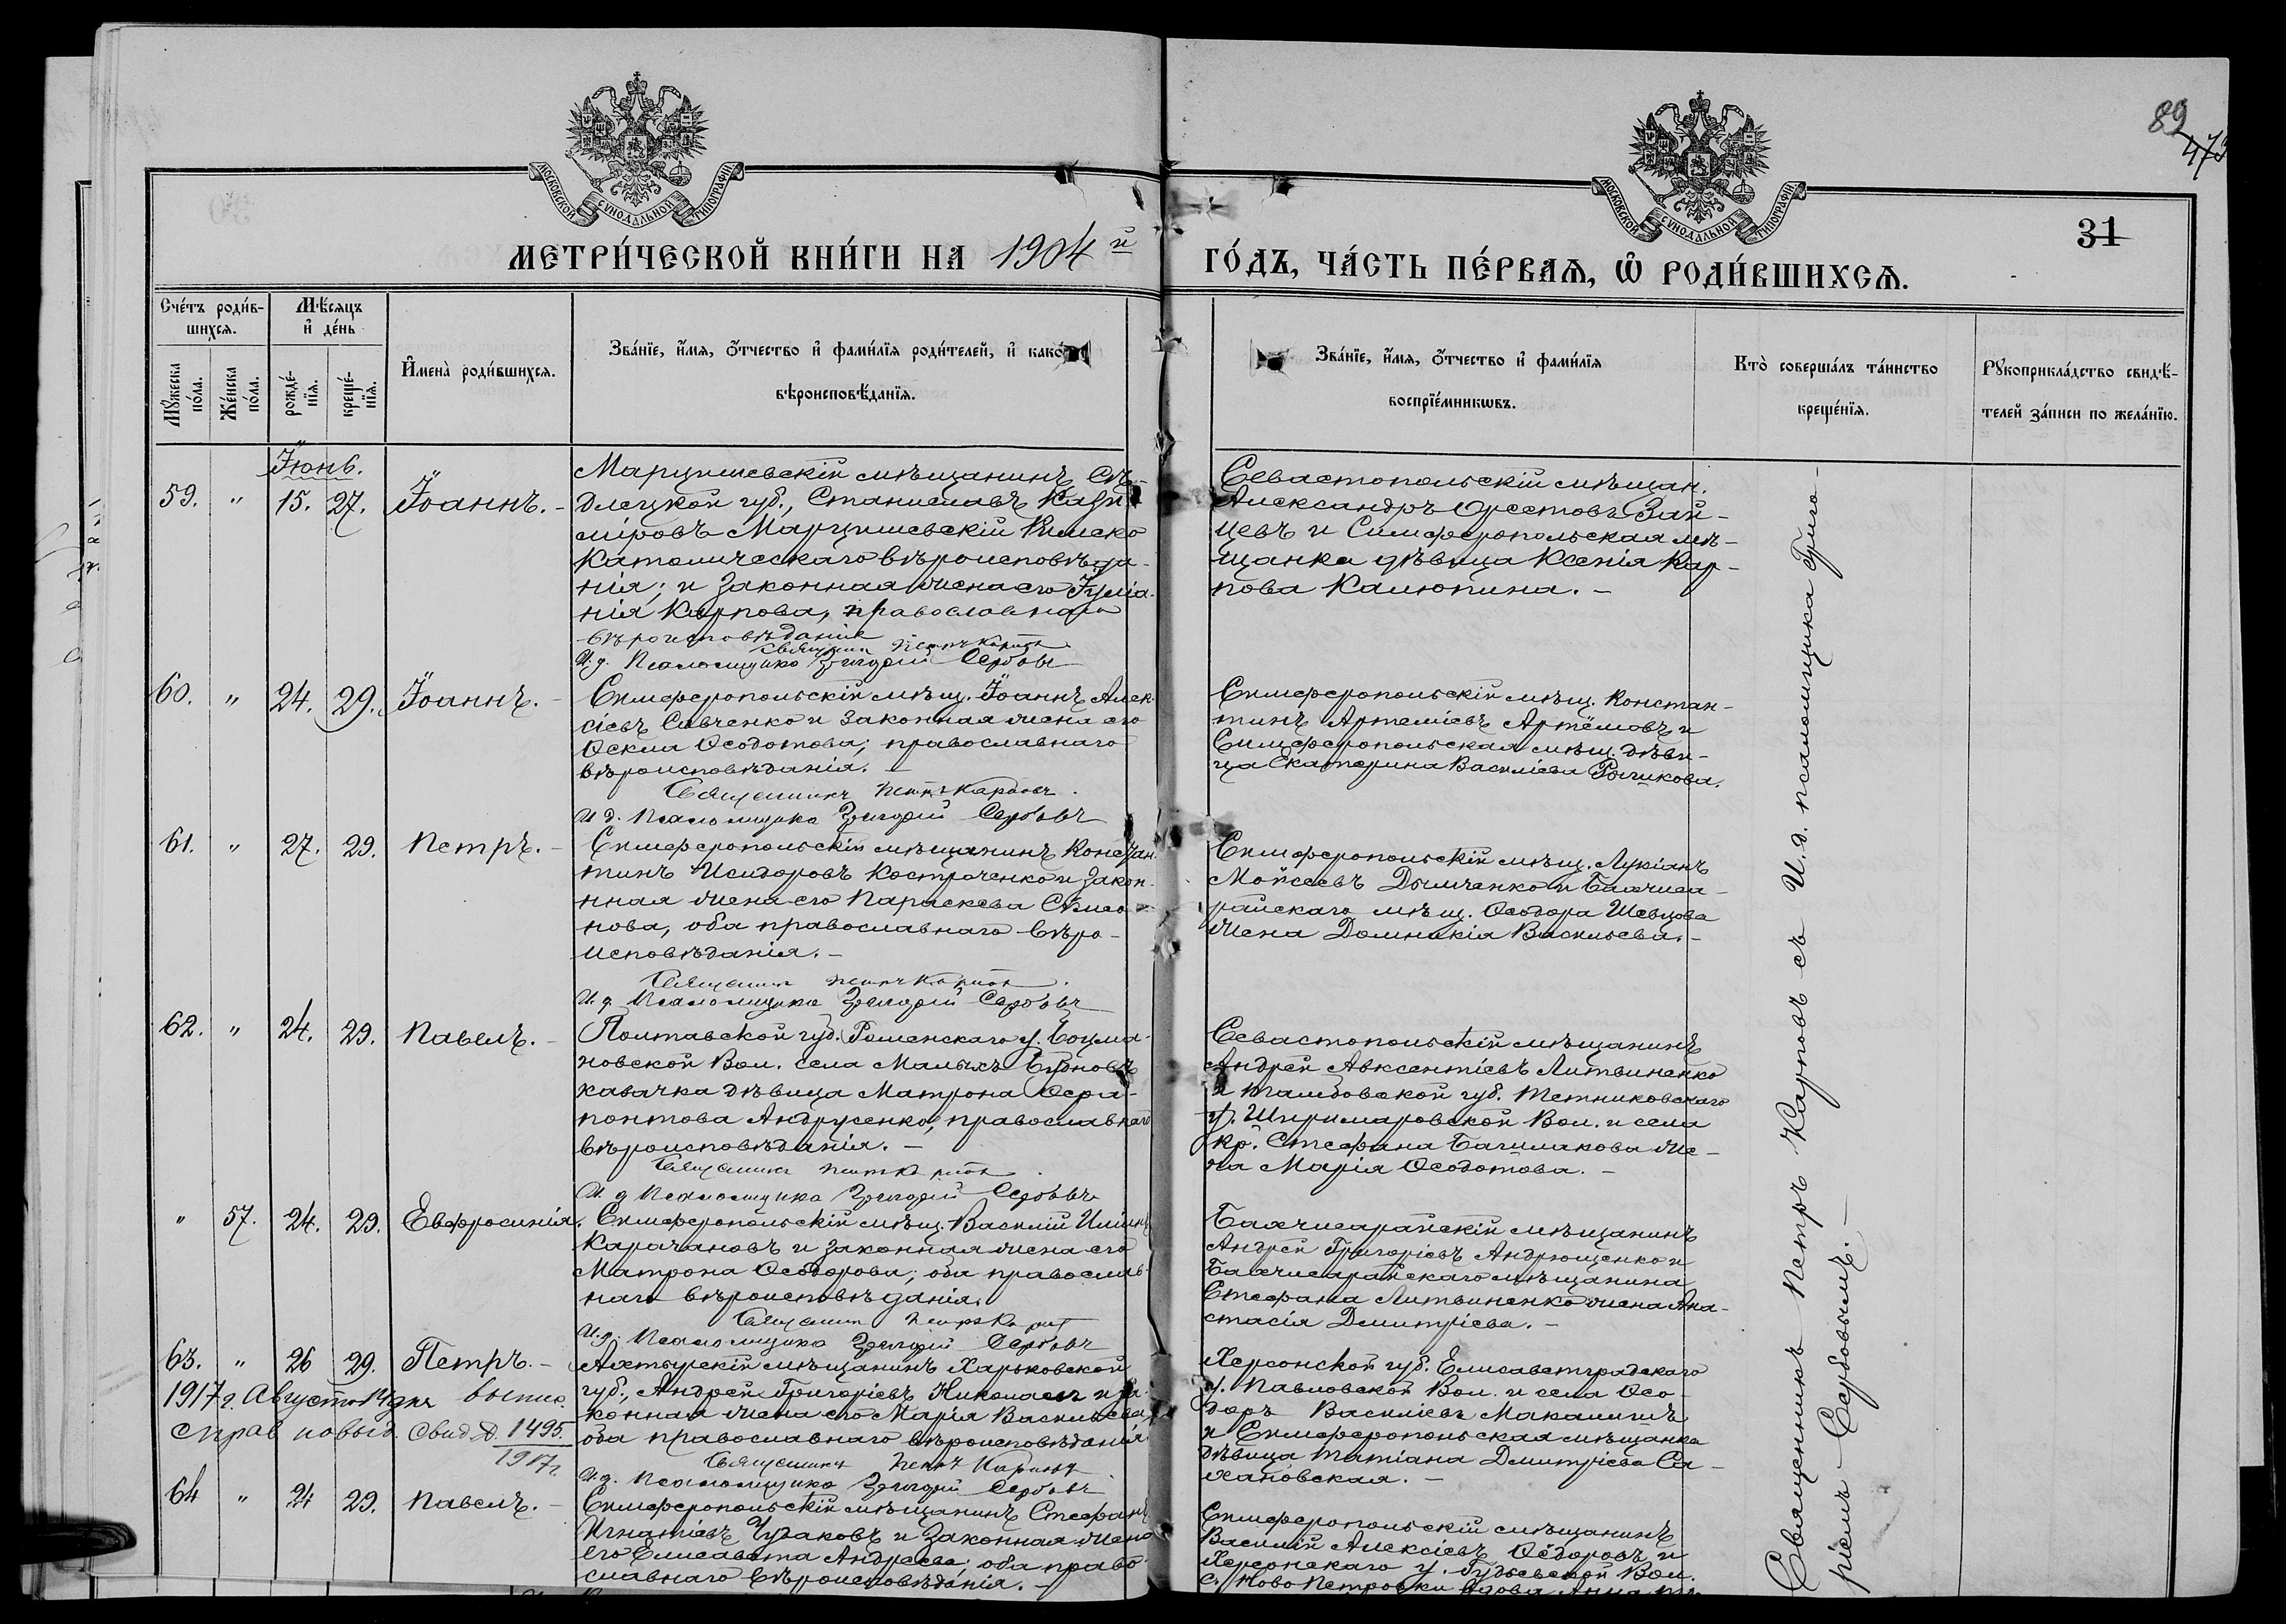 89
473
МОСКОВСКОЙ СѴНОДАЛЬНОЙ ТИПОГРАФІИ
МОСКОВСКОЙ СѴНОДАЛЬНОЙ ТИПОГРАФІИ
31
МЕТРИ́ЧЕСКОЙ КНИ́ГИ НА 1904й
ГО́ДЪ, ЧА́СТЬ ПЕ́РВАѦ, Ѡ҆ РОДИ́ВШИХСѦ.
Сче́тъ роди́в-
шихсѧ.
Мꙋ́жеска по́ла.
Же́нска по́ла.
Мѣ́сѧцъ
и҆ де́нь
рожде́-
нїѧ.
креще́-
нїѧ.
И҆мена̀ роди́вшихсѧ.
Зва́нїе, и҆́мѧ, ѻ҆́тчество и҆ фами́лїѧ роди́телей, и҆ како
вѣроисповѣ́данїѧ.
Зва́нїе, и҆́мѧ, ѻ҆́тчество и҆ фами́лїѧ
воспрїе́мникѡвъ.
Кто̀ соверша́лъ та́инство
креще́нїѧ.
Рꙋкоприкла́дство свидѣ́-
телей за́писи по жела́нїю.
Іюнь.
59. " 15. 27. Іоаннъ. -
Марцишевскій мѣщанинъ Сѣ-
длецкой губ., Станиславъ Кази-
міровъ Марцишевскій Римско
Католическаго вѣроисповѣда-
нія; и законная жена его Іуліа-
нія Карпова, православнаго
вѣроисповѣданія
Священникъ Петръ Карповъ
И. д. Псаломщика Григорій Сербовъ
Севастопольскій мѣщан.
Александръ Орестовъ Зай-
цевъ и Симферопольская мѣ-
щанка дѣвица Ксенія Кар-
пова Калюпина. -
60. " 24. 29. Іоаннъ. -
Симферопольскій мѣщ. Іоаннъ Алек-
сіевъ Савченко и законная жена его
Ѳекла Ѳеодотова; православнаго
вѣроисповѣданія. -
Священникъ Петръ Карповъ.
И д. Псаломщика Григорій Сербовъ
Симферопольскій мѣщ. Констан-
тинъ Артеміевъ Артёмовъ и
Симферопольская мѣщ. дѣви-
ца Екатерина Василіева Рычкова.
61. " 27. 29. Петръ. -
Симферопольскій мѣщанинъ Констан-
тинъ Исидоровъ Костроченко и закон-
ная жена его Параскева Симо-
нова, оба православнаго вѣро-
исповѣданія. -
Священникъ Петръ Карповъ.
И. д. Псаломщика Григорій Сербовъ
Симферопольскій мѣщ. Лукіанъ
Мойсеевъ Дымченко и Бахчиса-
райскаго мѣщ. Ѳеодора Шевцова
жена Домникія Васильева. -
62. " 24. 29. Павелъ. -
Полтавской губ. Роменскаго у. Боцма-
новской Вол. села Малыхъ Будновъ
казачка дѣвица Матрона Ѳера-
понтова Андрусенко, православнаго
вѣроисповѣданія. -
Священникъ Петръ Карповъ.
И д Псаломщика Григорій Сербовъ
Севастопольскій мѣщанинъ
Андрей Авксентіевъ Литвиненко
и Тамбовской губ. Темниковскаго
у. Ширмаровской Вол. и села
кр. Стефана Башмакова же-
на Марія Ѳеодотова. -
" 57. 24. 29. Евфросинія.
Симферопольскій мѣщ. Василій Ильинъ
Карачановъ и законная жена его
Матрона Ѳеодорова; оба православ-
наго вѣроисповѣданія.
Священникъ Петръ Карповъ
И.д. Псаломщика Григорій Сербовъ
Бахчисарайскій мѣщанинъ
Андрей Григоріевъ Андрющенко и
Бахчисарайскаго мѣщанина
Стефана Литвиненко жена Ана-
стасія Димитріева. -
63. " 26 29. Петръ. -
1917 г. Августа 14 дня выпис.
справ. по выд. свид. № 1495.
1917 г.
Ахтырскій мѣщанинъ Харьковской
губ., Андрей Григоріевъ Николаевъ и за-
конная жена его Марія Васильева,
оба православнаго вѣроисповѣданія
Священникъ Петръ Карповъ
И.д. Псаломщика Григорій Сербовъ
Херсонской губ. Елисаветградскаго
у. Павловской Вол. и села Ѳео-
доръ Василіевъ Макалишъ
и Симферопольская мѣщанка
дѣвица Татіана Димитріева Са-
хановская. -
64 " 24 29. Павелъ. -
Симферопольскій мѣщанинъ Стефанъ
Игнатіевъ Чудаковъ и законная жена
его Елисавета Андреева; оба право-
славнаго вѣроисповѣданія. -
Симферопольскій мѣщанинъ
Василій Алексіевъ Ѳёдоровъ и
Херсонскаго у. Гурьевской Вол.
с. Ново Петровки вдова Анна
Священникъ Петръ Карповъ съ И.д. псаломщика Григо-
ріемъ Сербовымъ. -